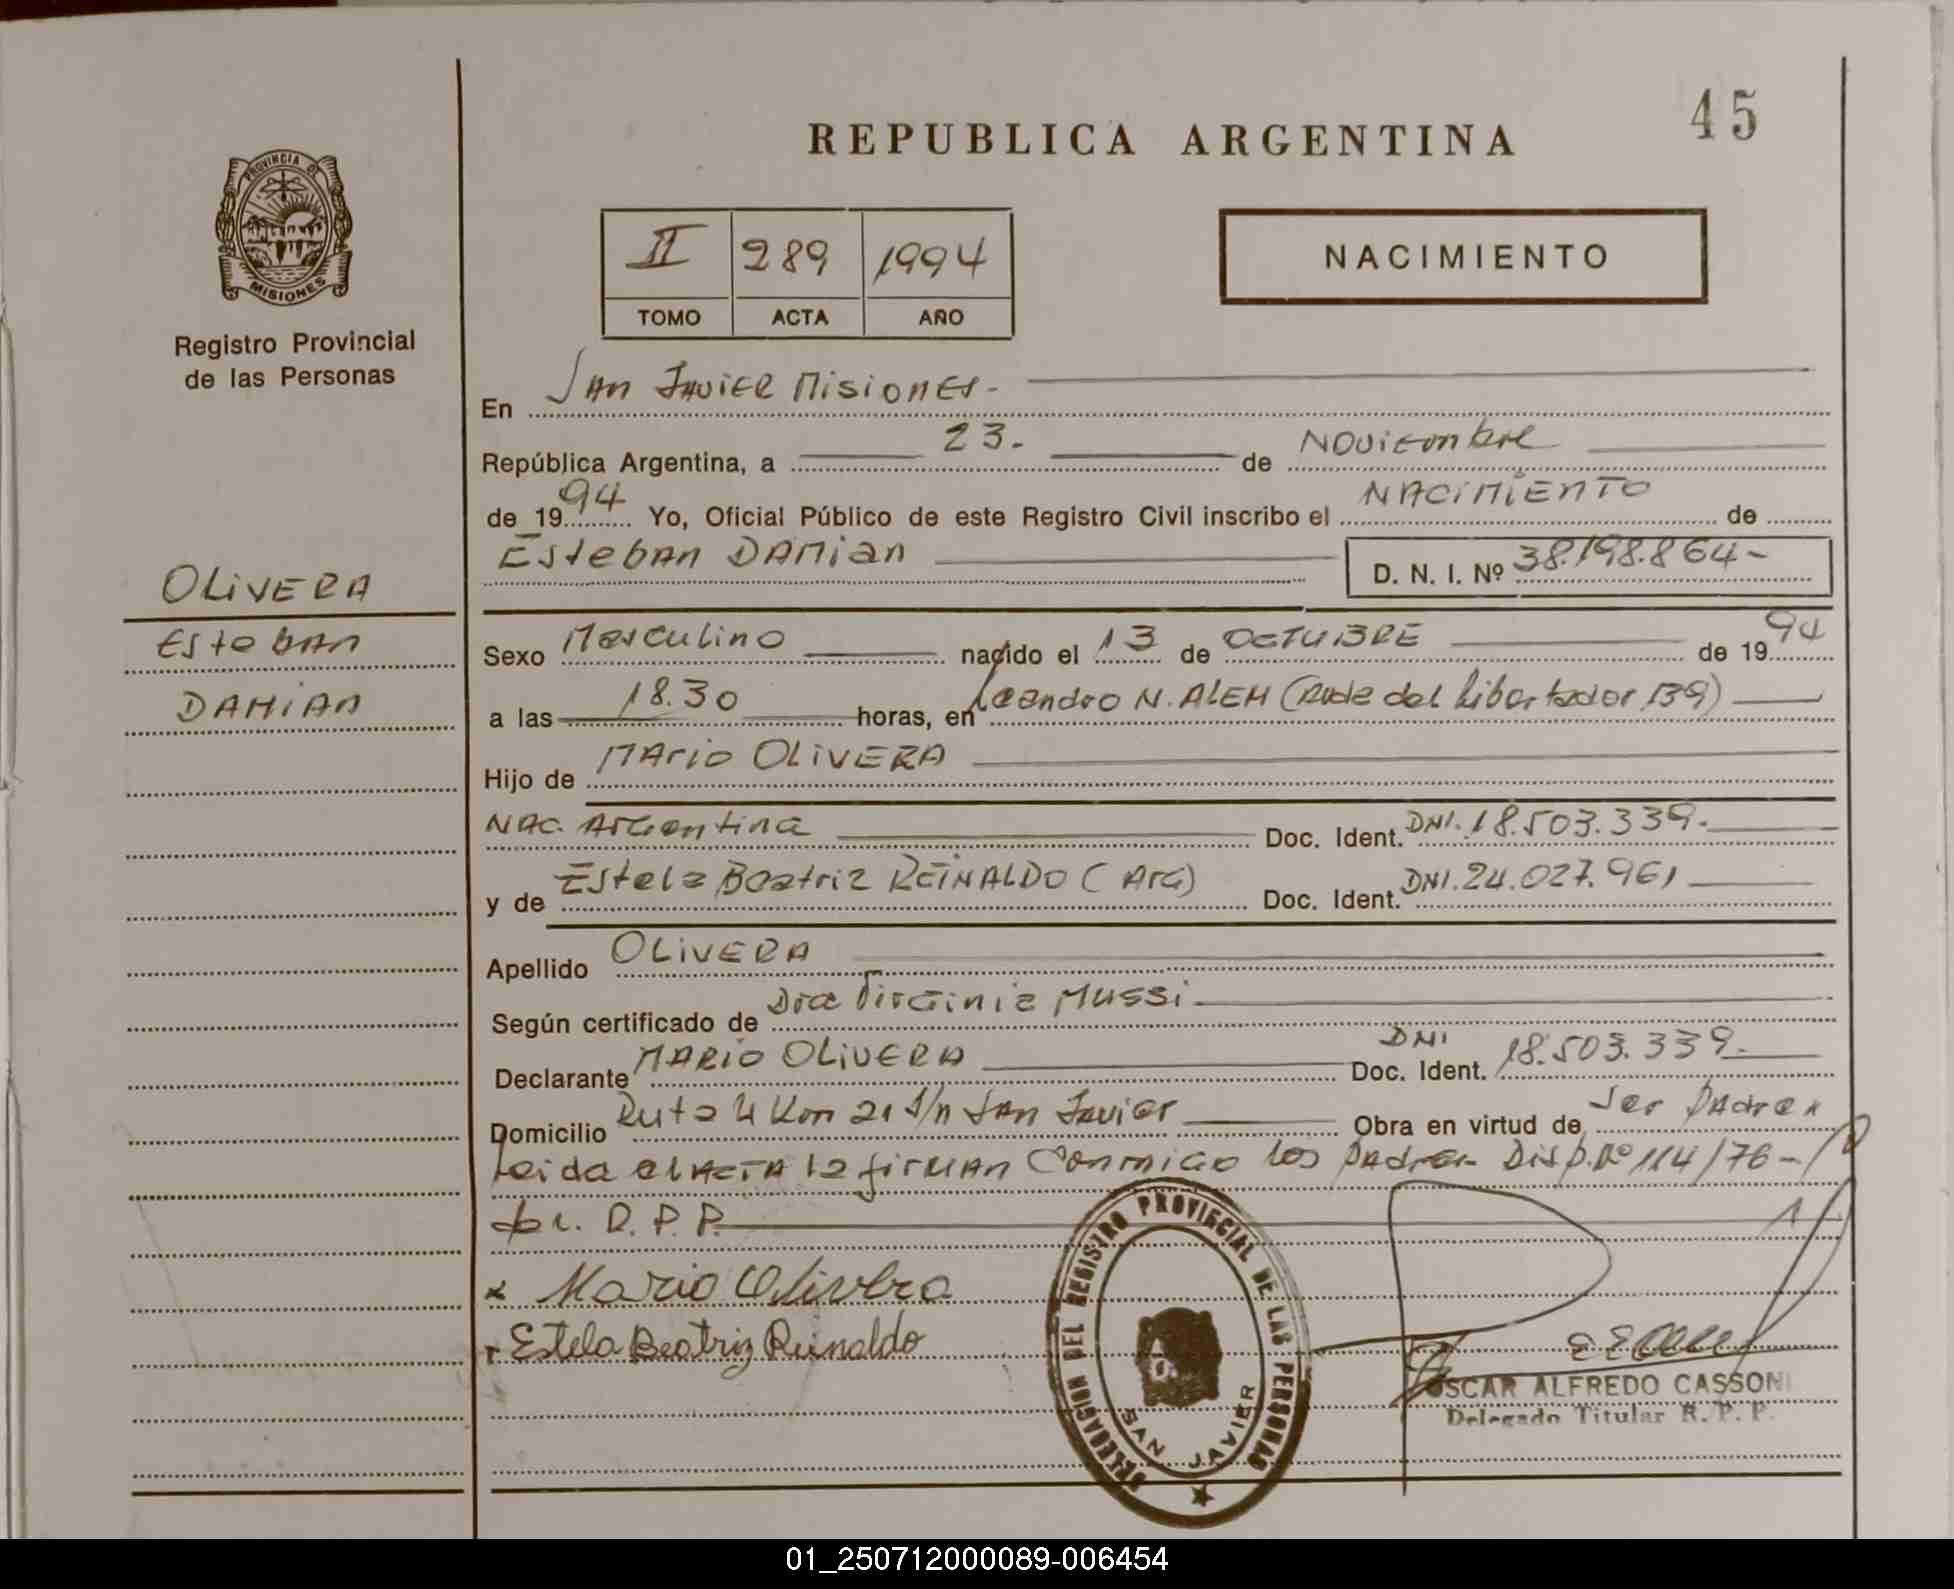 45
REPUBLICA ARGENTINA
PROVINCIA DE
MISIONES
Registro Provincial
de las Personas
II 289 1994
TOMO ACTA AÑO
NACIMIENTO
En San Javier Misiones-
República Argentina, a 23- de Noviembre
de 1994 Yo, Oficial Público de este Registro Civil inscribo el NACIMIENTO de
Esteban Damian D. N. I. Nº 38.198.864-
OLIVERA
Esteban
DAMIAN
Sexo Masculino nacido el 13 de OCTUBRE de 1994
a las 18.30 horas, en Leandro N. ALEM (Avda del Libertador 139)
Hijo de MARIO OLIVERA
NAC. Argentina Doc. Ident. DNI. 18.503.339.
y de Estela Beatriz REINALDO (Arg) Doc. Ident. DNI. 24.027.961
Apellido OLIVERA
Según certificado de Dra Virginia Mussi
Declarante MARIO OLIVERA Doc. Ident. DNI 18.503.339.
Domicilio Ruta 4 Km 21 S/n San Javier Obra en virtud de Ser Padre
Leida el ACTA la firman Conmigo los padres Disp. Nº 114/76-
R. P. P.
x Mario Olivera
Estela Beatriz Reinaldo
DELEGACION DEL REGISTRO PROVINCIAL DE LAS PERSONAS
SAN JAVIER
OSCAR ALFREDO CASSONI
Delegado Titular R. P. P.
01_250712000089-006454